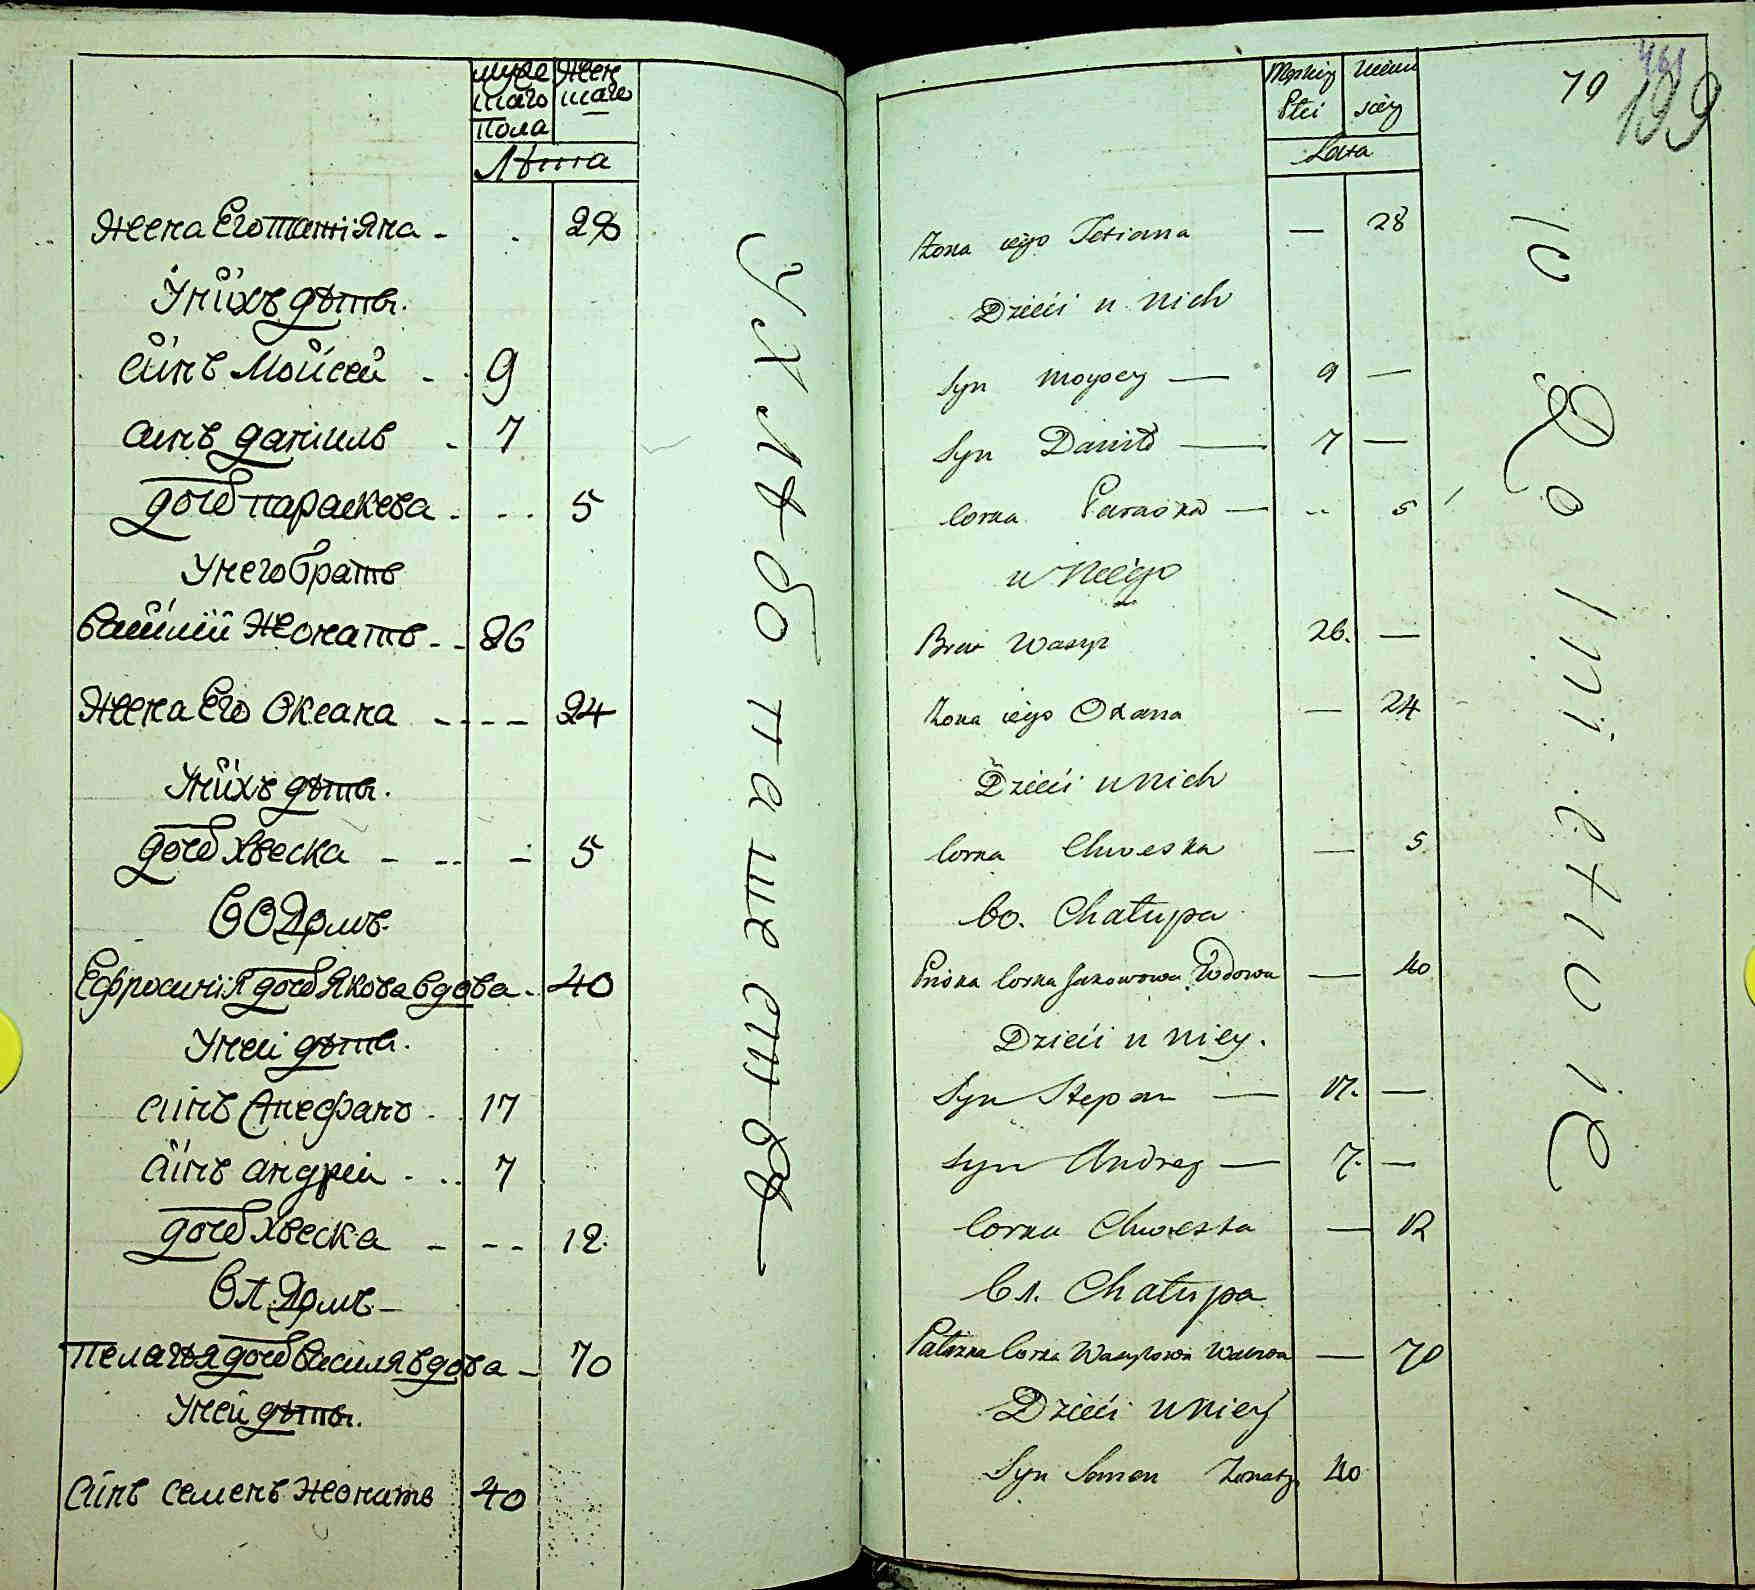 муже Жен
скаго скаго
Пола
Лѣта
Жена Его Татіяна - . 28
У нихъ дѣти.
Синъ Мойсей - . 9
Синъ даніилъ - 7
дочь параскева . - . . 5
У него братъ
Василій Жонатъ - - 26
Жена Его Оксана - - - - 24
У нихъ дѣти.
дочь хвеска - - - - 5
ВО Домъ.
Ефросинія дочь Якова вдова - 40
У неи дѣти.
Синъ Стефанъ . . 17
Синъ андрій . . . 7
дочь хвеска - - - 12.
Вл. Домъ -
Пелагія дочь василя вдова - 70
У ней дѣти.
Синъ семенъ Жонатъ 40
У Хлѣбопашествѣ
461
79 199
Męskiey żeńs
Płci kiey
Lata
Żona iego Tetiana — 28
Dzieci u nich
Syn Moysey — 9 —
Syn Daniło — 7 —
Corka Paraska — -- 5
u Niego
Brat Wasyl 26. —
Żona iego Oxana — 24
Dzieci u nich
Corka Chweska — 5
Во. Chałupa
Priska Corka Jakowowa Wdowa — 40
Dzieci u niey.
Syn Stepan — 17. —
Syn Andrey — 7. —
Corka Chweska — 12
Вл. Chałupa
Dzieci u niey
Syn Semen Żonaty 40
W Rolnictwie